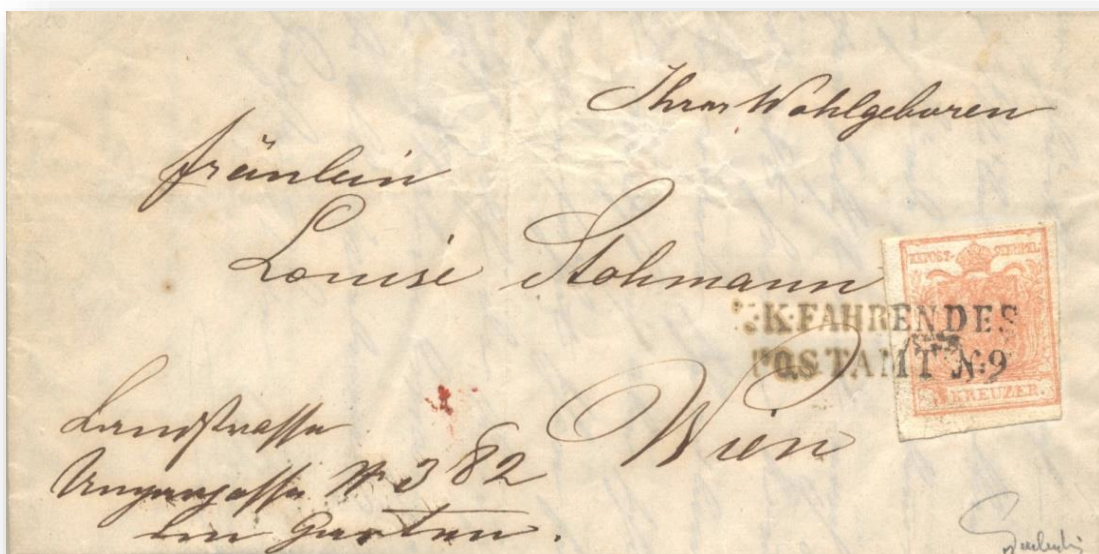 Ihrer Wohlgeboren
Fräulein
Louise Stohmann
K:K:FAHRENDES
POSTAMT N:9
KKPOST-STEMPEL
KREUZER.
Wien
Landstrasse
Ungargasse N 382
im Garten.